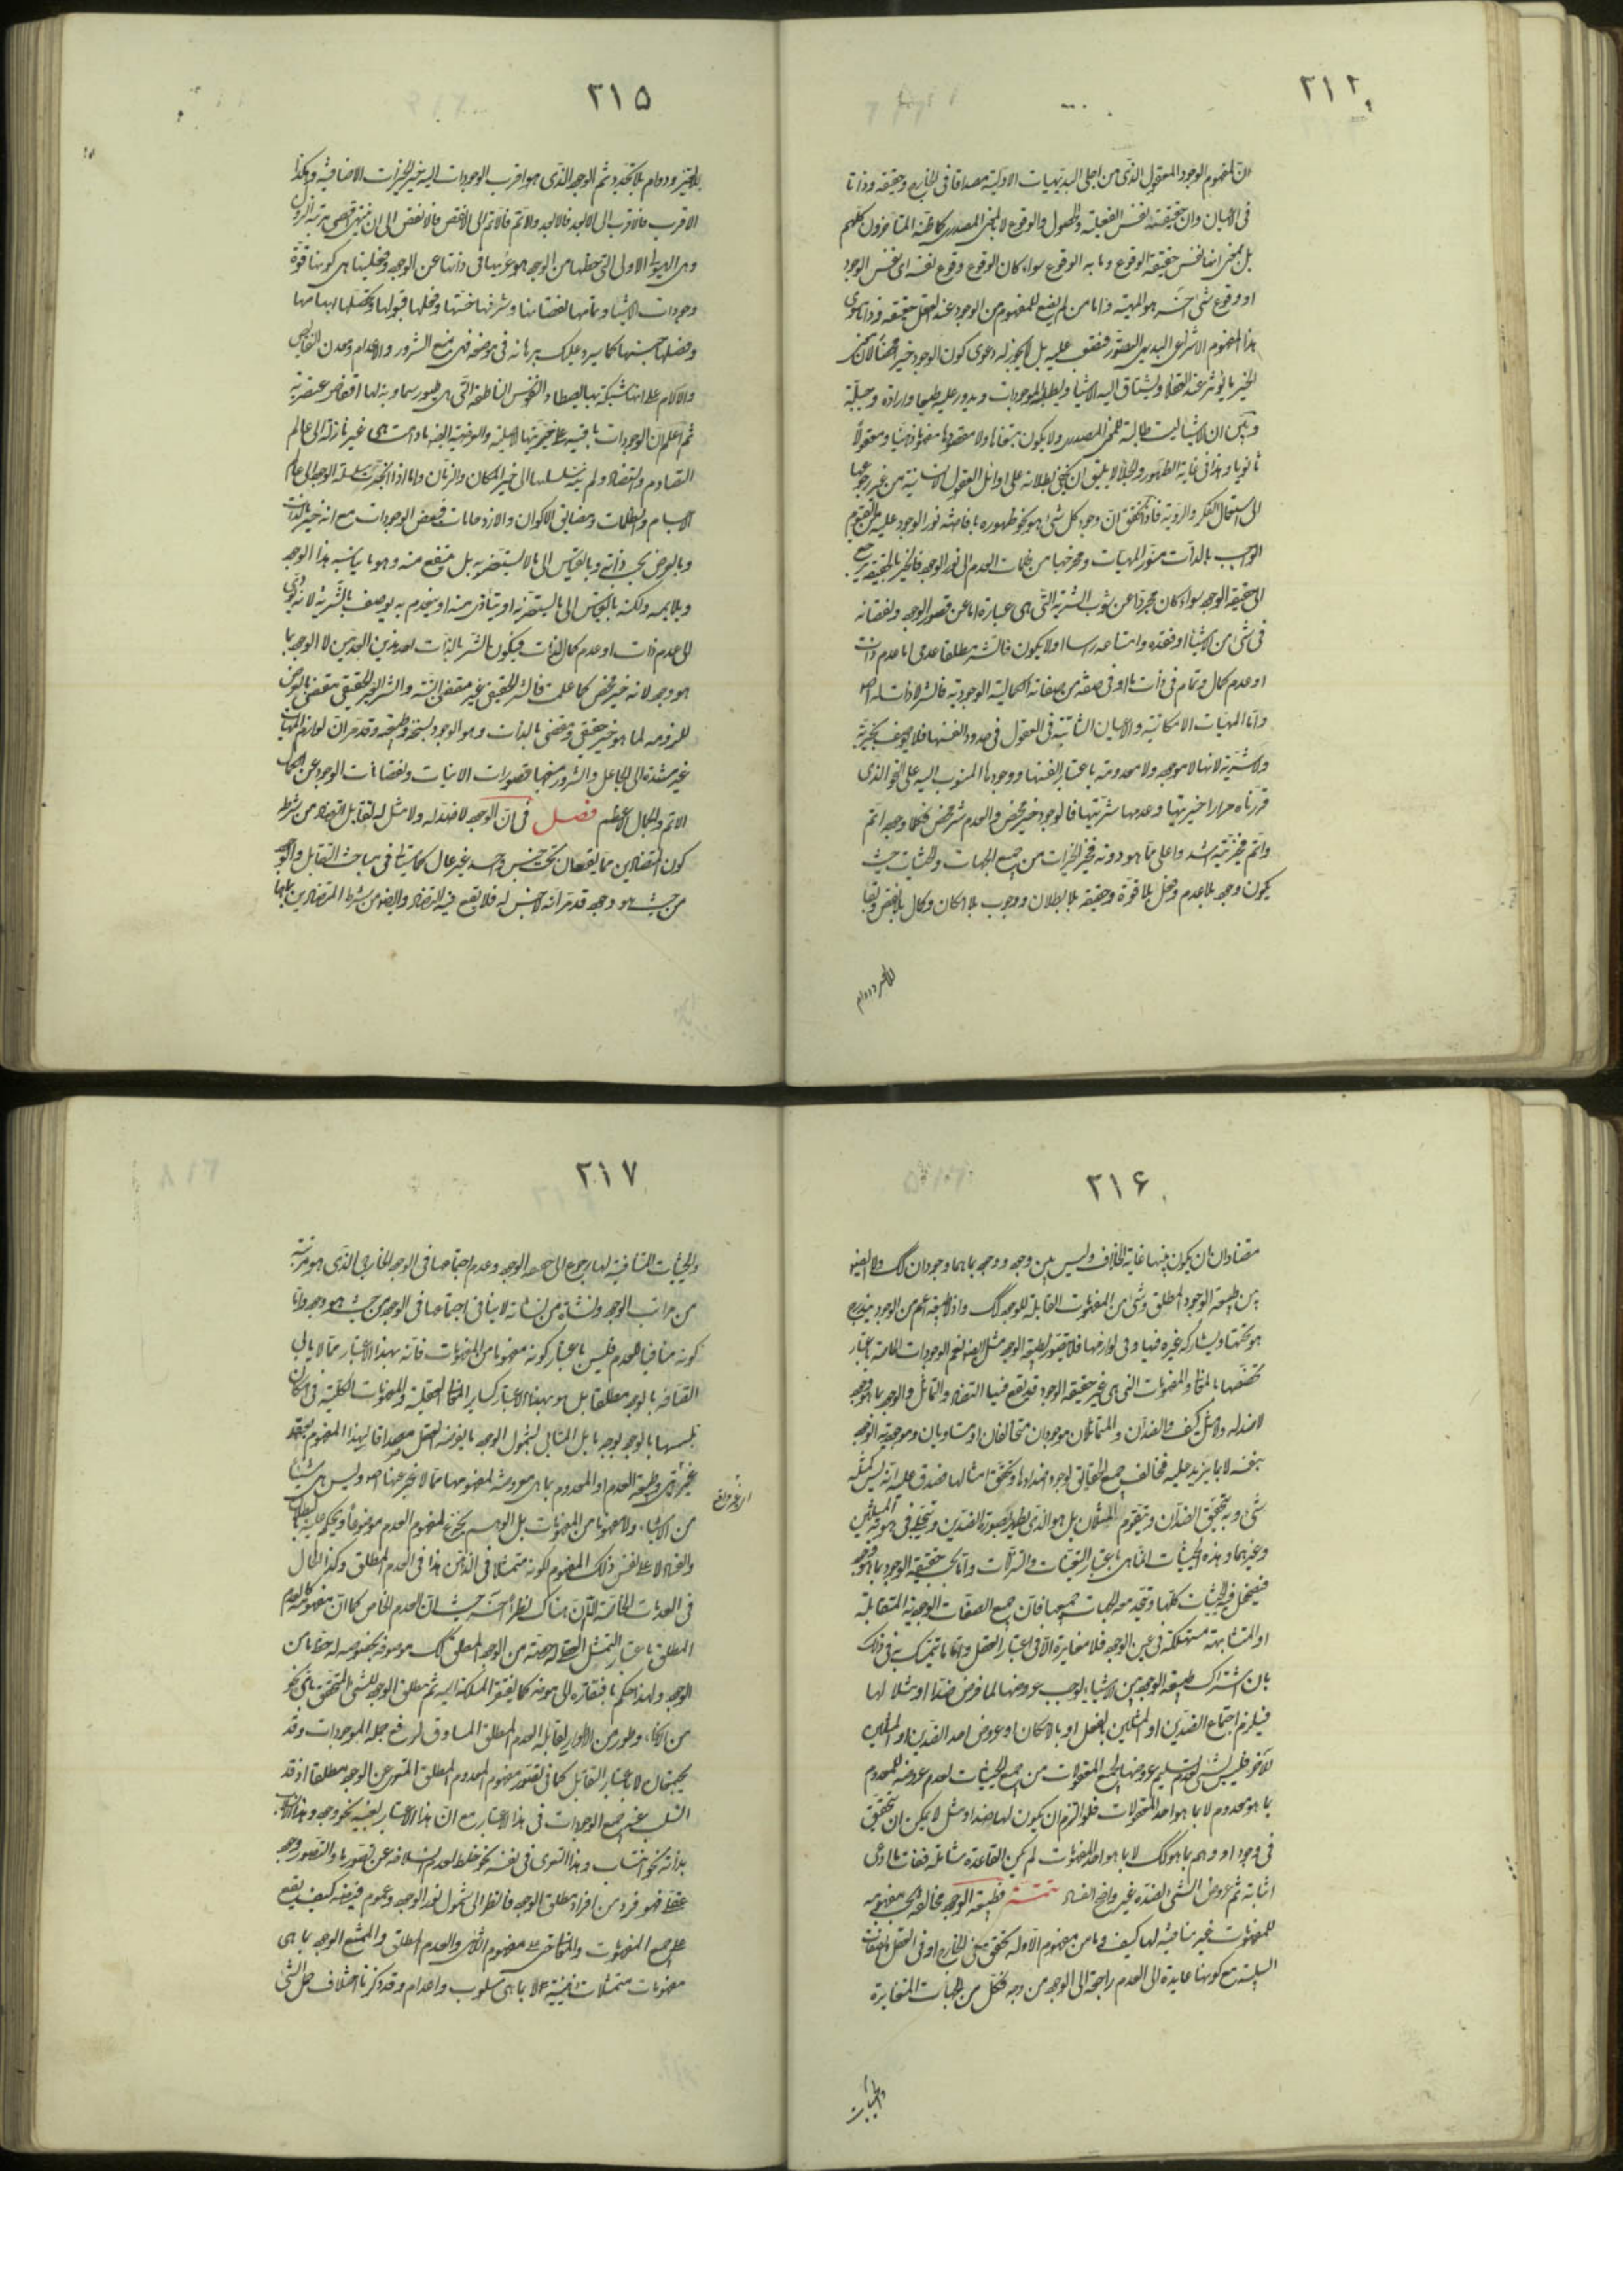 ٢١٢
ان لمفهوم الوجود المعقول الذى من اجلى البديهيات الاولية مصداقا فى الخارج وحقيقة وذاتا
فى الاعيان وان حقيقته نفس الفعلية والحصول والوقوع لا بالمعنى المصدرى كما ظنه المتاخرون كلهم
بل بمعنى انها نفس حقيقة الوقوع وما به الوقوع سواء كان الوقوع وقوع نفسه اى نفس الوجود
او وقوع شى اخر هو المهية واما من لم يضع للمفهوم من الوجود عند العقل حقيقة وذاتا سوى
هذا المفهوم الانتزاعى البديهى التصور فيصعب عليه بل لا يجوز له دعوى كون الوجود خيرا محضا لان معنى
الخير ما يؤثر عند العقلاء ويشتاق اليه الاشياء ويطلبه الموجودات ويدور عليه طبعا وارادة وجبلة
وبين ان الاشياء ليست طالبة للمعنى المصدرى ولا يكون مبتغاها ولا مقصودها مفهوما ذهنيا ومعقولا
ثانويا وهذا فى غاية الظهور والجلاء لا يليق ان يخفى بطلانه على اوائل العقول الانسانية من غير رجوعها
الى استعمال الفكر والروية فاذا تحقق ان وجود كل شى هو نحو ظهوره بافاضة نور الوجود عليه من القيوم
الواجب بالذات منور المهيات ومخرجها من ظلمات العدم الى نور الوجود فالخير بالحقيقة يرجع
الى حقيقة الوجود سواء كان مجردا عن شوب الشرية التى هى عبارة اما عن قصور الوجود ونقصانه
فى شى من الاشياء او فقده وامتناعه راسا او لا يكون فالشر مطلقا عدمى اما عدم ذات
او عدم كمال وتمام فى ذات ما او فى صفة من صفاته الكمالية الوجودية فالشر لا ذات له اصلا
واما المهيات الامكانية والاعيان الثابتة فى العقول فى حدود انفسها فلا يوصف بخيرية
ولا شرية لانها لا موجودة ولا معدومة باعتبار انفسها ووجودها المنسوب اليه على النحو الذى
قررناه مرارا خيريتها وعدمها شريتها فالوجود خير محض والعدم شر محض فكلما وجوده اتم
واتم فخيريته اشد واعلى مما هو دونه فخير الخيرات من جميع الجهات والحيثيات حيث
يكون وجود بلا عدم وفعل بلا قوة وحقية بلا بطلان ووجوب بلا امكان وكمال بلا نقص وبقاء
بلا تغير ودوام
٢١٥
بلا تغير ودوام بلا تجدد ثم الوجود الذى هو اقرب الوجودات اليه خير الخيرات الاضافية وهكذا
الاقرب فالاقرب الى الابعد فالابعد والاتم فالاتم الى الانقص فالانقص الى ان ينتهى الى اقصى مرتبة النزول
وهى الهيولى الاولى التى حظها من الوجود هو عريها فى ذاتها عن الوجود وفعليتها هى كونها قوة
وجودات الاشياء وتمامها نقصانها وشرفها خستها وفعلها قبولها وتحصلها ابهامها
وفصلها جنسها كما سيرد عليك برهانه فى موضعه فهى منبع الشرور والاعدام ومعدن النقائص
والالام على انها شبكة بها يصطاد النفوس الناطقة التى هى طيور سماوية لها اقفاص عنصرية
ثم اعلم ان الوجودات باقية على خيريتها الاصلية والعرضية ايضا ما دامت هى غير نازلة الى عالم
التصادم والتضاد ولم ينته سلسلتها الى حيز المكان والزمان واما اذا انجر سلسلة الوجود الى عالم
الاجسام والظلمات ومضايق الاكوان والازدحامات فبعض الوجودات مع انه خير بالذات
وبالعرض بحسب ذاته وبالقياس الى ما لا يستضر به بل ينتفع منه وهو ما يناسبه هذا الوجود
ويلايمه ولكنه بالقياس الى ما يستضر به او يتاذى منه او ينعدم به يوصف بالشرية لانه يودى
الى عدم ذات او عدم كمال لذات فيكون الشر بالذات احد هذين العدمين لا الوجود بما
هو وجود لانه خير محض كما علمت فالشر الحقيقى غير مقضى البتة والشر الغير الحقيقى مقضى بالعرض
للزومه لما هو خير حقيقى ومقضى بالذات وهو الوجود بسنخه وطبيعته وقد مر ان لوازم المهيات
غير مستندة الى الجاعل والشرور منبعها قصورات الانيات ونقصانات الوجود عن الكمال
الاتم والجمال الاعظم فصل فى ان الوجود لا ضد له ولا مثل له لتقابل التضاد من شرط
كون المتضادين مما يقعان تحت جنس واحد غير عال كما سياتى فى مباحث التقابل والوجود
من حيث هو وجود قد مر انه لا جنس له فلا يقع فيه التضاد وايضا من شرط المتضادين بما هما
٢١۶
متضادان ان يكون بينهما غاية الخلاف وليس بين وجود ووجود بما هما وجودان كذلك ولا ايضا
بين طبيعة الوجود المطلق وشى من المفهومات القابلة للوجود كذلك واذ لا طبيعة اعم من الوجود يندرج
هو تحتها ويشاركه غيره فيها وفى لوازمها فلا يتصور لطبيعة الوجود مثل ايضا نعم الوجودات الخاصة باعتبار
تخصصها بالمعانى والمفهومات التى هى غير حقيقة الوجود قد يقع فيها التضاد والتماثل والوجود بما هو وجود
لا ضد له ولا مثل كيف والضدان والمتماثلان موجودان متخالفان او متساويان وموجودية الوجود
بنفسه لا بما يزيد عليه فيخالف جميع الحقايق لوجود اضدادها وتحقق امثالها فصدق عليه انه ليس كمثله
شى وبه يتحقق الضدان ويتقوم المثلان بل هو الذى يظهر بصورة الضدين ويتجلى فى هوية المثلين
وغيرهما وهذه الحيثيات انما هى باعتبار التعينات والتنزلات واما بحسب حقيقة الوجود بما هو وجود
فيضمحل فيه الحيثيات كلها ويتحد معه الجهات جميعها فان جميع الصفات الوجودية المتقابلة
او المتشابهة مستهلكة فى عين الوجود فلا مغايرة الا فى اعتبار العقل واما ما يتمسك به فى ذلك
بان اشتراك طبيعة الوجود بين الاشياء يوجب عروضها لما فرض ضدا او مثلا لها
فيلزم اجتماع الضدين او المثلين بالفعل او بالامكان او عروض احد الضدين او المثلين
للاخر فليس بشى لعدم تسليم عروضها لجميع المعقولات من جميع الحيثيات لعدم عروضه للمعدوم
بما هو معدوم لا بما هو احد المعقولات فلو التزم ان يكون لها ضد او مثل لا يمكن ان يتحقق
فى وجود او وهم بما هو كذلك لا بما هو احد المفهومات لم يكن القاعدة شاملة ففات ما ادعى
اثباته ثم عروض الشى لضده غير واضح الفساد تتمة فطبيعة الوجود مخالفة بحسب مفهومه
للمفهومات غير منافية لها كيف وما من مفهوم الا وله تحقق فى الخارج او فى العقل والصفات
السلبية مع كونها عايدة الى العدم راجعة الى الوجود من وجه فكل من الجهات المتغايرة
والحيثيات
٢١٧
والحيثيات المتنافية لها رجوع الى حقيقة الوجود وعدم اجتماعها فى الوجود الخارجى الذى هو مرتبة
من مراتب الوجود ونشاة من نشاته لا ينافى اجتماعها فى الوجود من حيث هو وجود واما
كونه منافيا للعدم فليس باعتبار كونه مفهوما من المفهومات فانه بهذا الاعتبار مما لا يابى
اتصافه بالوجود مطلقا بل هو بهذا الاعتبار كسائر المعانى العقلية والمفهومات الكلية فى امكان
تلبسها بالوجود بوجه ما بل المنافى لشمول الوجود ما يفرضه العقل مصداقا لهذا المفهوم بعقد
غير بتى وطبيعة العدم او المعدوم بما هى معروضة لمفهومها مما لا خبر عنها اصلا وليس هى شيئا
من الاشياء ولا مفهوما من المفهومات بل الوهم يخترع لمفهوم العدم موضوعا ويحكم عليه بالبطلان
والفساد لا على نفس ذلك المفهوم لكونه متمثلا فى الذهن هذا فى العدم المطلق وكذا الحال
فى العدمات الخاصة الا ان هناك نظرا اخر حيث ان العدم الخاص كما ان مفهومه كالعدم
المطلق باعتبار التمثل العقلى له حصة من الوجود المطلق كذلك موصوفه بخصوصه له حظ ما من
الوجود ولهذا حكم بافتقاره الى موضوع كما يفتقر الملكة اليه ثم مطلق الوجود للشى المتحقق باى نحو
من الانحاء وطور من الاطوار يقابله العدم المطلق المساوق لرفع جملة الموجودات وقد
يجتمعان لا باعتبار التقابل كما فى تصور مفهوم المعدوم المطلق المتسور عن الوجود مطلقا اذ قد
انسلب عنه جميع الوجودات فى هذا الاعتبار مع ان هذا الاعتبار بعينه نحو وجود وهذا الانسلاب
بذاته نحو انتساب وهذا التعرى فى نفسه نحو خلط لعدم انسلاخه عن تصور ما والتصور وجود
عقلى فهو فرد من افراد مطلق الوجود فانظر الى شمول نور الوجود وعموم فيضه كيف يقع
على جميع المفهومات والمعانى حتى على مفهوم اللاشى والعدم المطلق والممتنع الوجود بما هى
مفهومات متمثلات ذهنية لا بما هى سلوب واعدام وقد ذكرنا اختلاف حمل الشى